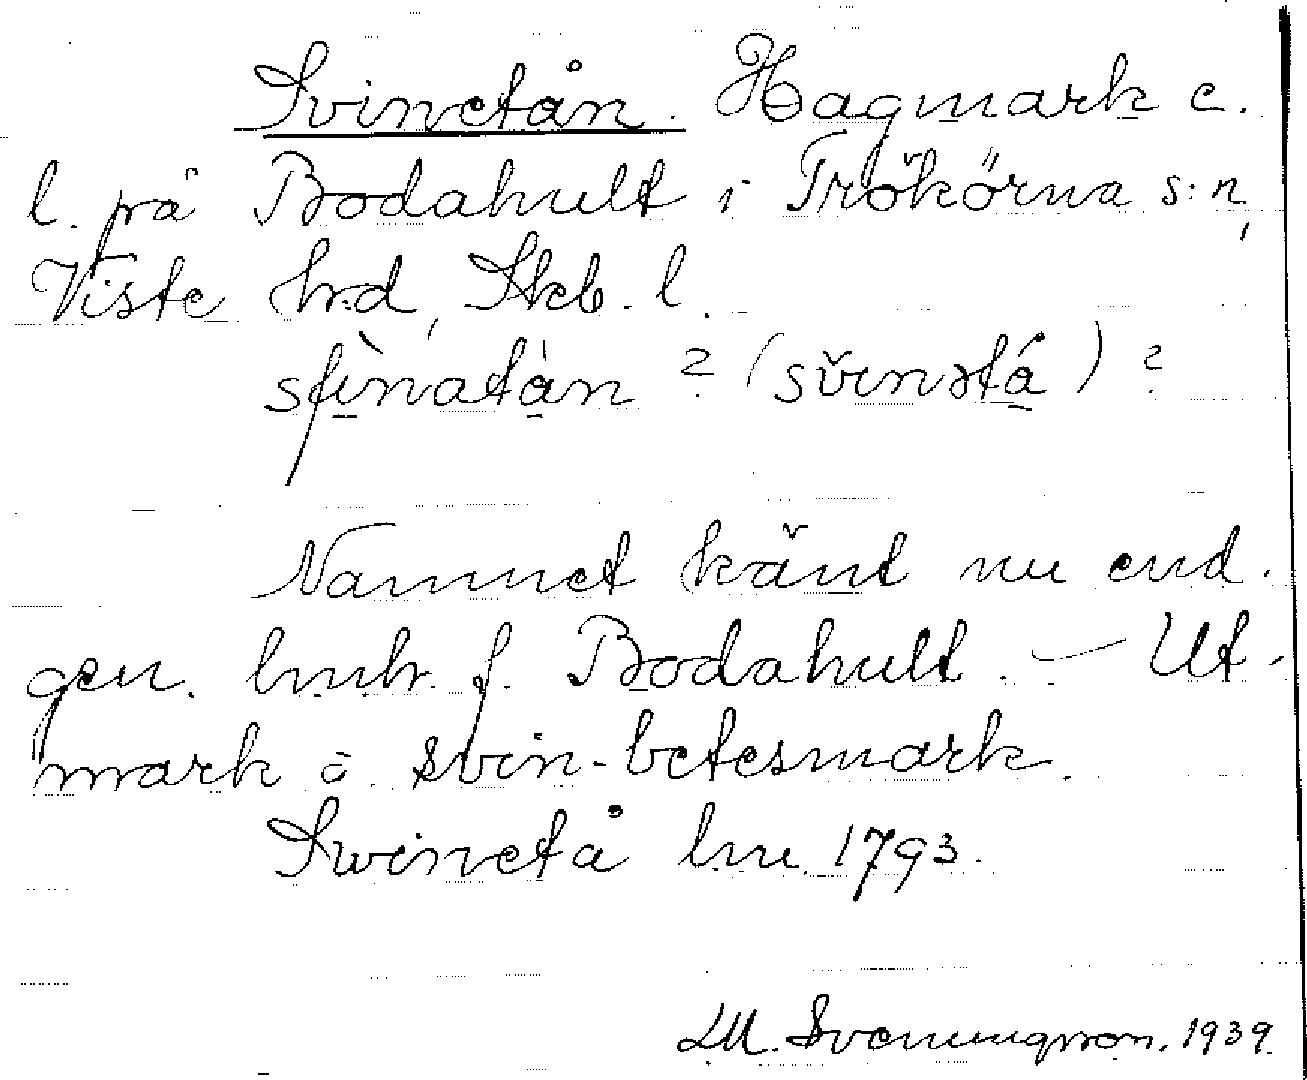 Svinetån. Hagmark e.
l. på Bodahult i Trökörna s:n,
Viste hrd, Skb. l.
Namnet känt nu end.
gen. lmh. f. Bodahult. — Ut-
mark o. svin-betesmark.
Swinetå lm. 1793.
Svenungsson. 1939.